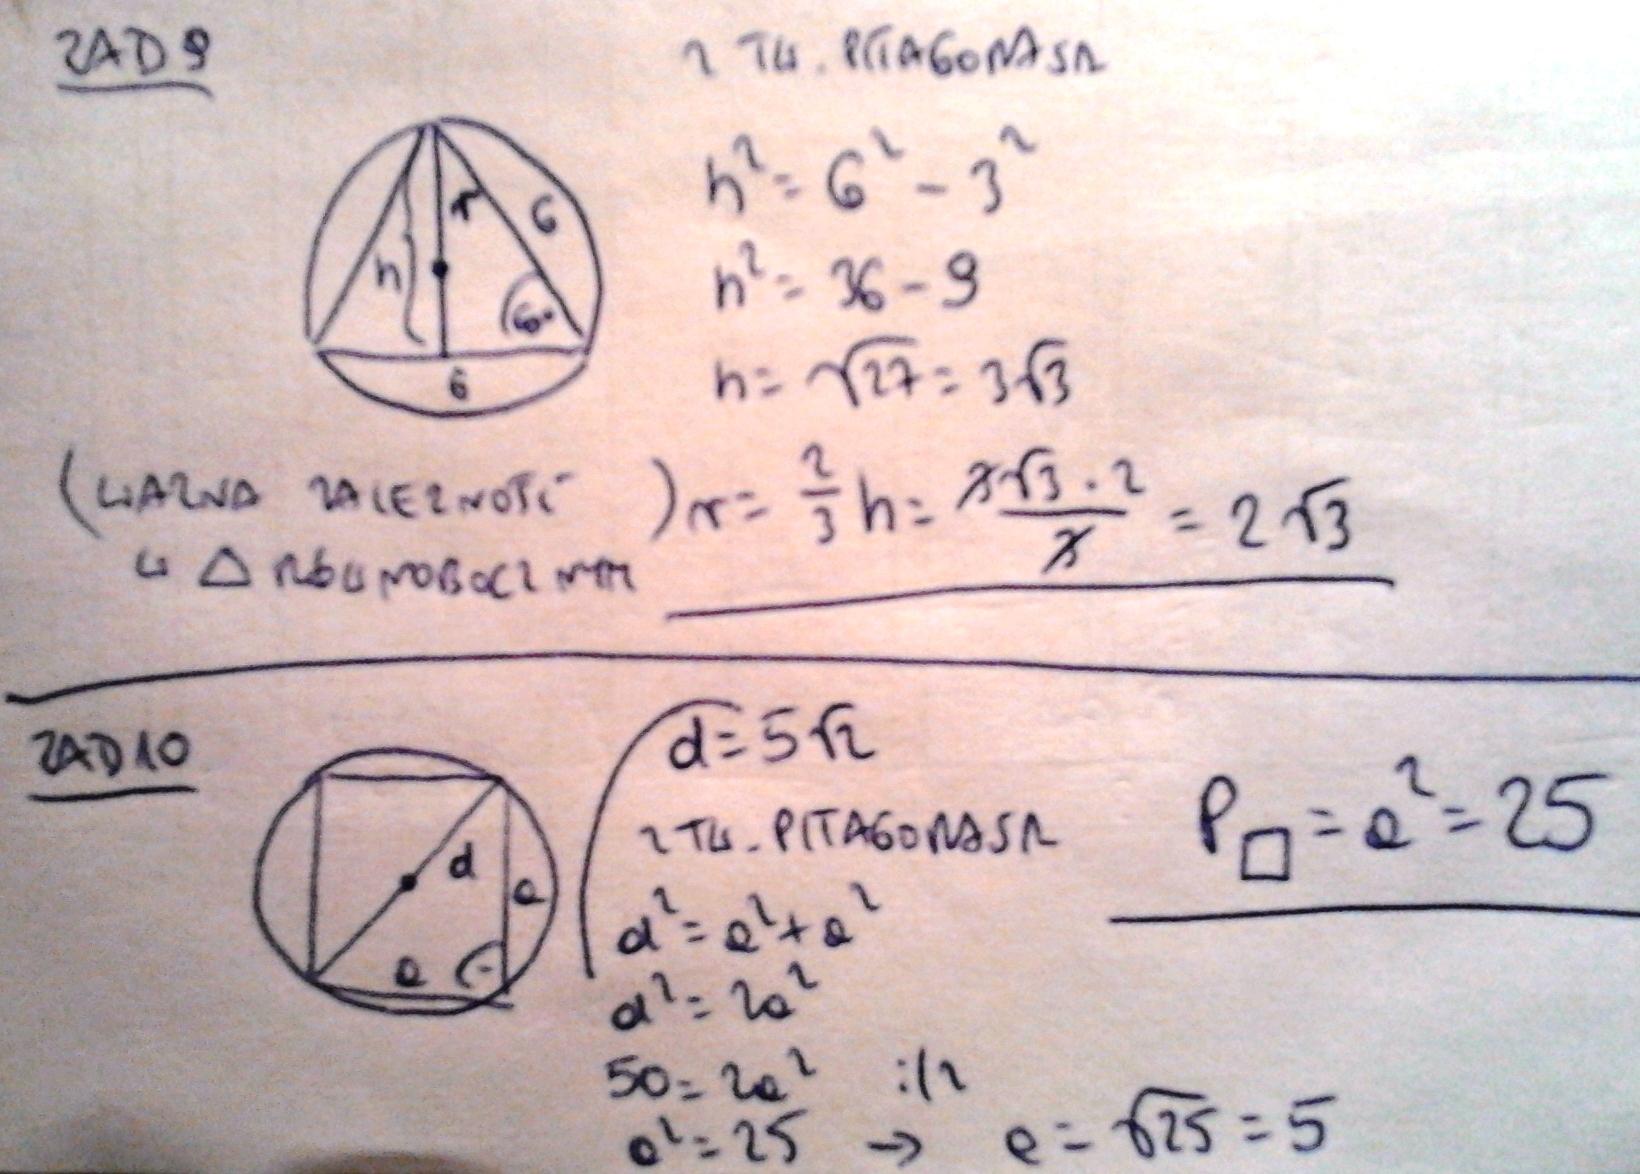 ZAD 9
Z TW. PITAGORASA
h² = 6² - 3²
r
6
h
60°
6
h² = 36 - 9
h = √27 = 3√3
(WAŻNA ZALEŻNOŚĆ
W △ RÓWNOBOCZNYM)
r = 2/3 h = 3√3 · 2 / 3 = 2√3
ZAD 10
d
a
a
d = 5√2
Z TW. PITAGORASA
d² = a² + a²
d² = 2a²
50 = 2a² :/2
a² = 25 → a = √25 = 5
P□ = a² = 25